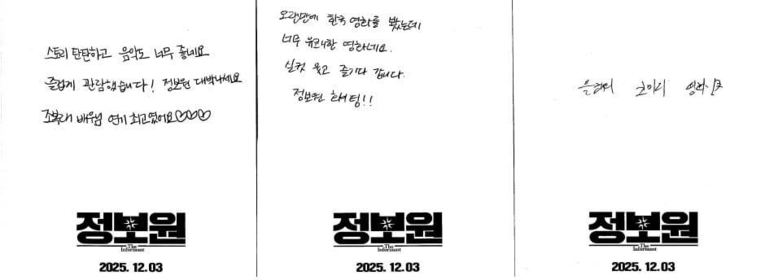 스토리 탄탄하고 음악도 너무 좋네요
즐겁게 관람했습니다! 정보원 대박나세요
조복래 배우님 연기 최고였어요♡♡♡
정보원
The Informant
2025. 12. 03
오랜만에 한국 영화를 봤는데
너무 유쾌한 영화네요.
실컷 웃고 즐기다 갑니다.
정보원 화이팅!!
정보원
The Informant
2025. 12. 03
정보원
The Informant
2025. 12. 03